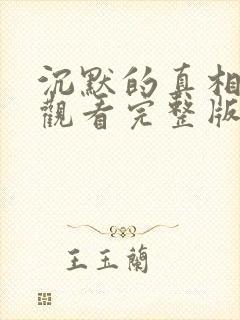 沉默的真相
觀看完整版
王玉蘭